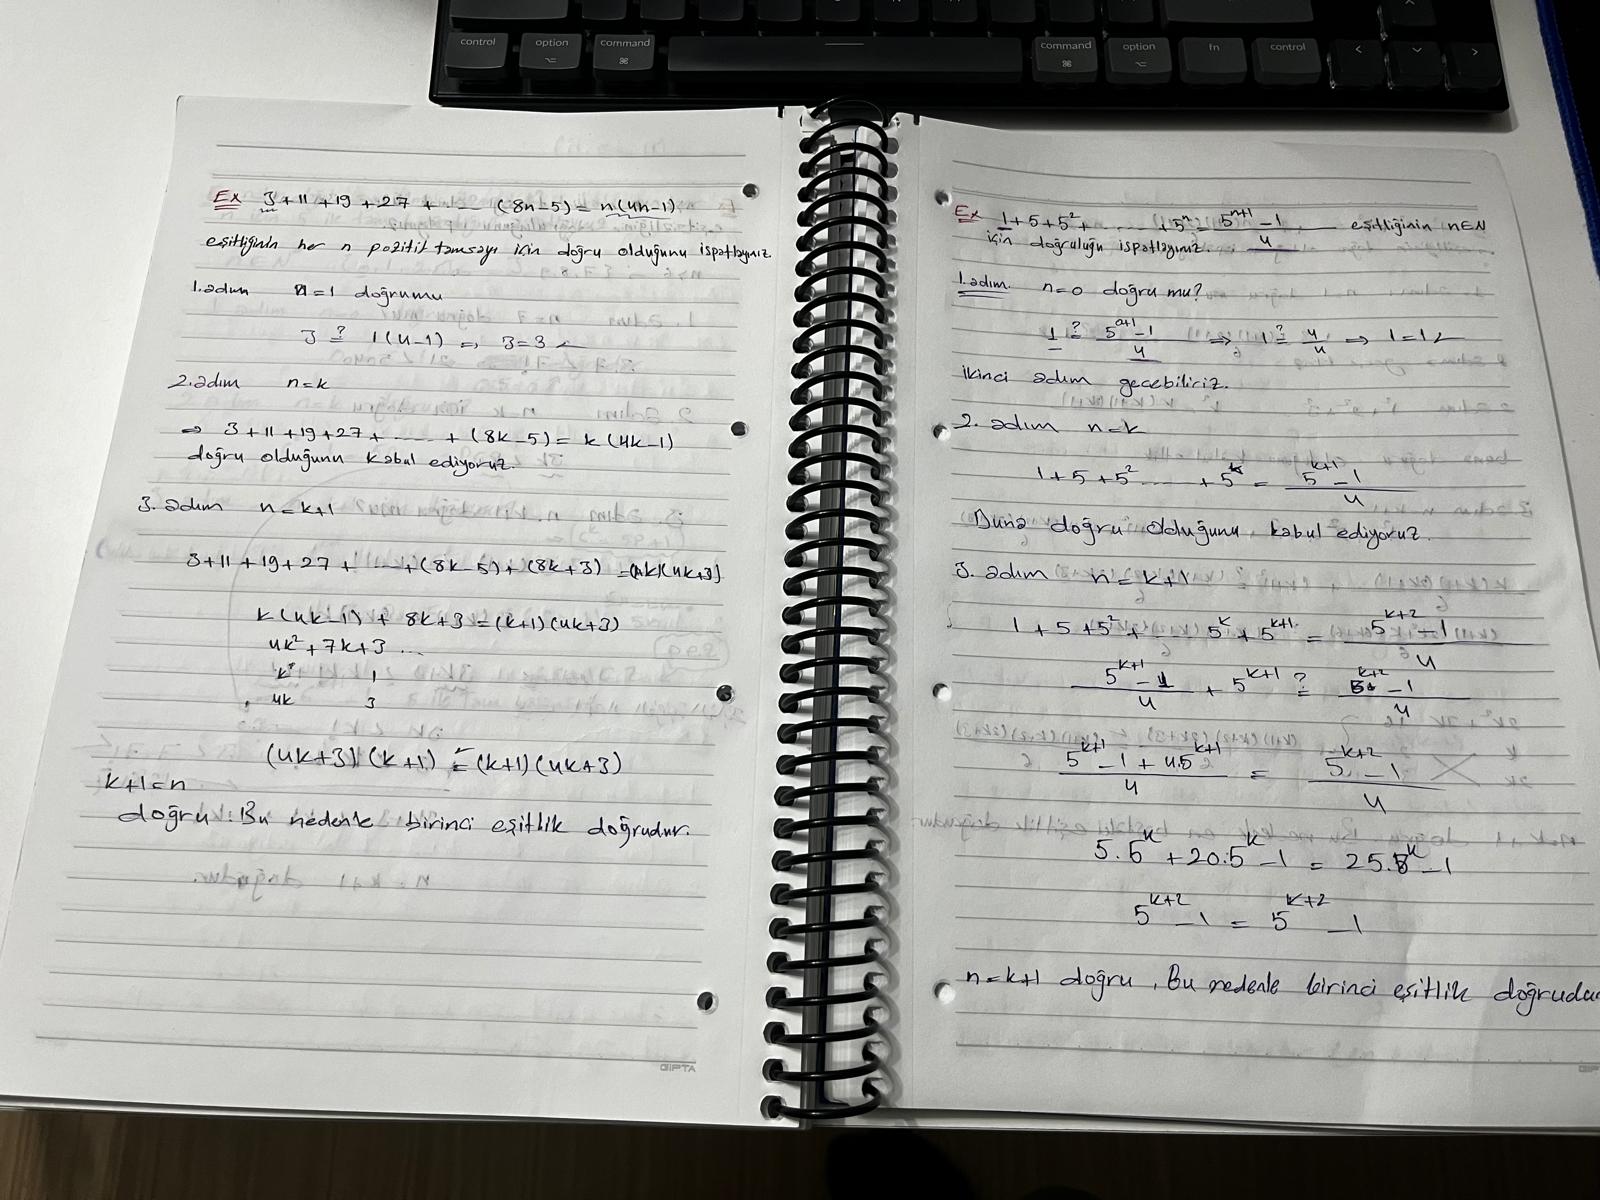 control option command command option fn control
⌥ ⌘ ⌘ ⌥
Ex 3+11+19+27+ ...... (8n-5) = n(4n-1)
eşitliğinin her n pozitif tamsayı için doğru olduğunu ispatlayınız.
1.adım n=1 doğrumu
3 ≟ 1(4-1) ⇒ 3=3 ✓
2.adım n=k
⇒ 3+11+19+27+ ...... +(8k-5) = k(4k-1)
doğru olduğunu kabul ediyoruz.
3. adım n=k+1
3+11+19+27+ ...... +(8k-5)+(8k+3) = (k+1)(4k+3)
k(4k-1) + 8k+3 = (k+1)(4k+3)
4k²+7k+3 ...
k 1
4k 3
(4k+3)(k+1) = (k+1)(4k+3)
k+1=n
doğru. Bu nedenle birinci eşitlik doğrudur.
GIPTA
Ex 1+5+5²+ ...... +5ⁿ = (5ⁿ⁺¹-1)/4 eşitliğinin n∈N
için doğruluğu ispatlayınız.
1.adım. n=0 doğru mu?
1 ≟ (5⁰⁺¹-1)/4 ⇒ 1 ≟ 4/4 ⇒ 1=1 ✓
ikinci adım geçebiliriz.
2. adım n=k
1+5+5² ...... +5ᵏ = (5ᵏ⁺¹-1)/4
Buna doğru olduğunu kabul ediyoruz.
3. adım n=k+1
1+5+5²+ ... 5ᵏ+5ᵏ⁺¹ = (5ᵏ⁺²-1)/4
(5ᵏ⁺¹-1)/4 + 5ᵏ⁺¹ ≟ (5ᵏ⁺²-1)/4
(5ᵏ⁺¹-1+4.5ᵏ⁺¹)/4 = (5ᵏ⁺²-1)/4
5.5ᵏ+20.5ᵏ-1 = 25.5ᵏ-1
5ᵏ⁺²-1 = 5ᵏ⁺²-1
n=k+1 doğru. Bu nedenle birinci eşitlik doğrudur